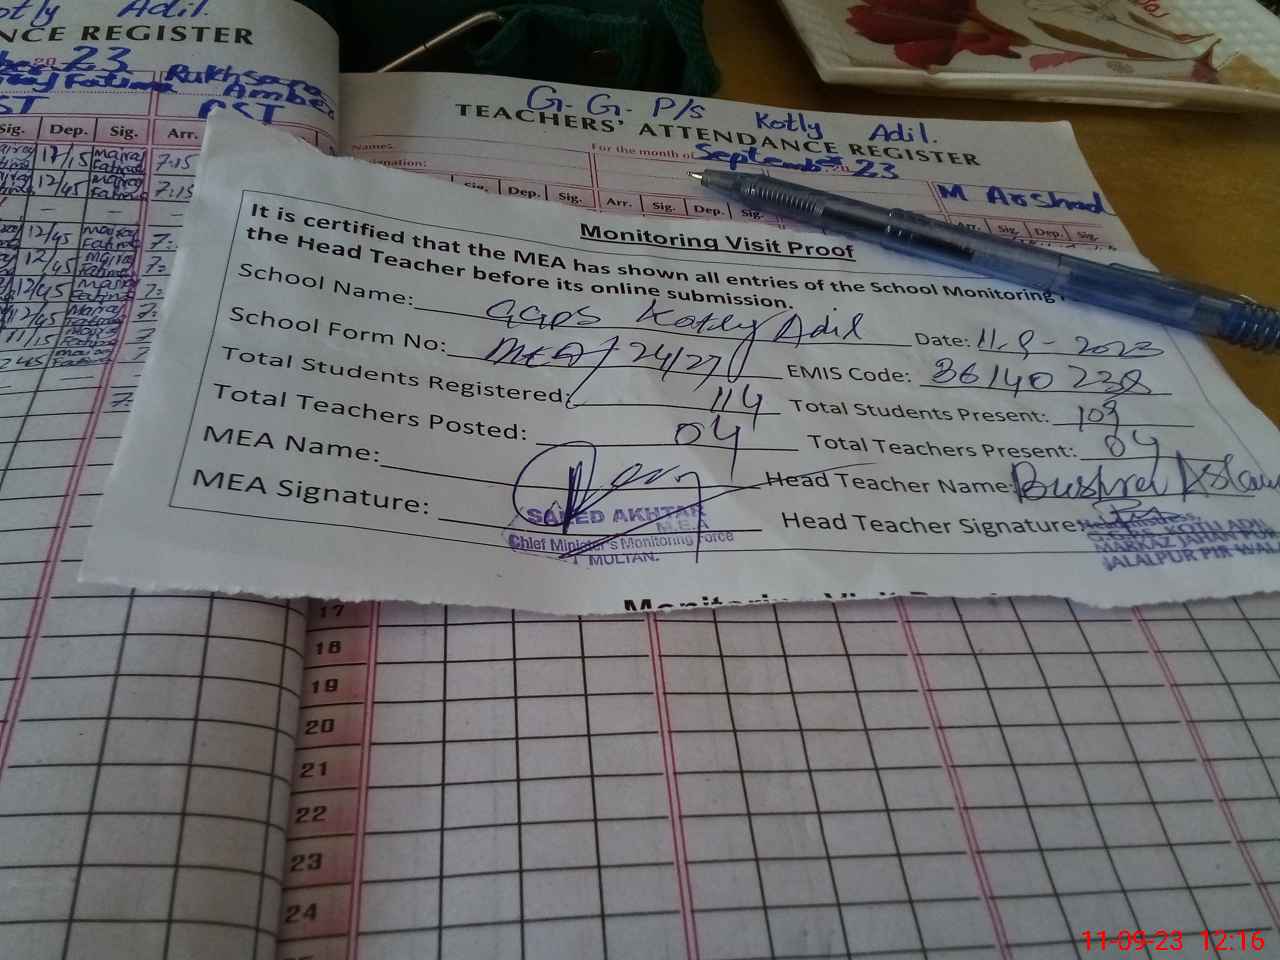 otly Adil.
NCE REGISTER
23
Fatima Rukhsana
Amber
ST CST
Sig. Dep. Sig. Arr.
12/45
12/45
12/45
12/45
12/45
12/45
11/15
7:15
7:15
G. G. P/s Kotly Adil.
TEACHERS' ATTENDANCE REGISTER
Names:
For the month of September 20 23
M Arshad
Sig. Dep. Sig. Arr. Sig. Dep. Sig.
Sig. Dep. Sig.
Monitoring Visit Proof
It is certified that the MEA has shown all entries of the School Monitoring
the Head Teacher before its online submission.
School Name: GGPS Kotly Adil Date: 11-9-2023
School Form No: MEA/24/27 EMIS Code: 36140238
Total Students Registered: 114 Total Students Present: 109
Total Teachers Posted: 04 Total Teachers Present: 04
MEA Name: Head Teacher Name: Bushra Aslam
MEA Signature: Head Teacher Signature:
SAEED AKHTAR
M.E.A
Chief Minister's Monitoring Force
MULTAN.
KOTLI ADIL
MARKAZ JAHAN PUR
JALALPUR PIR WAL
Monitoring Visit
17
18
19
20
21
22
23
24
11-09-23 12:16